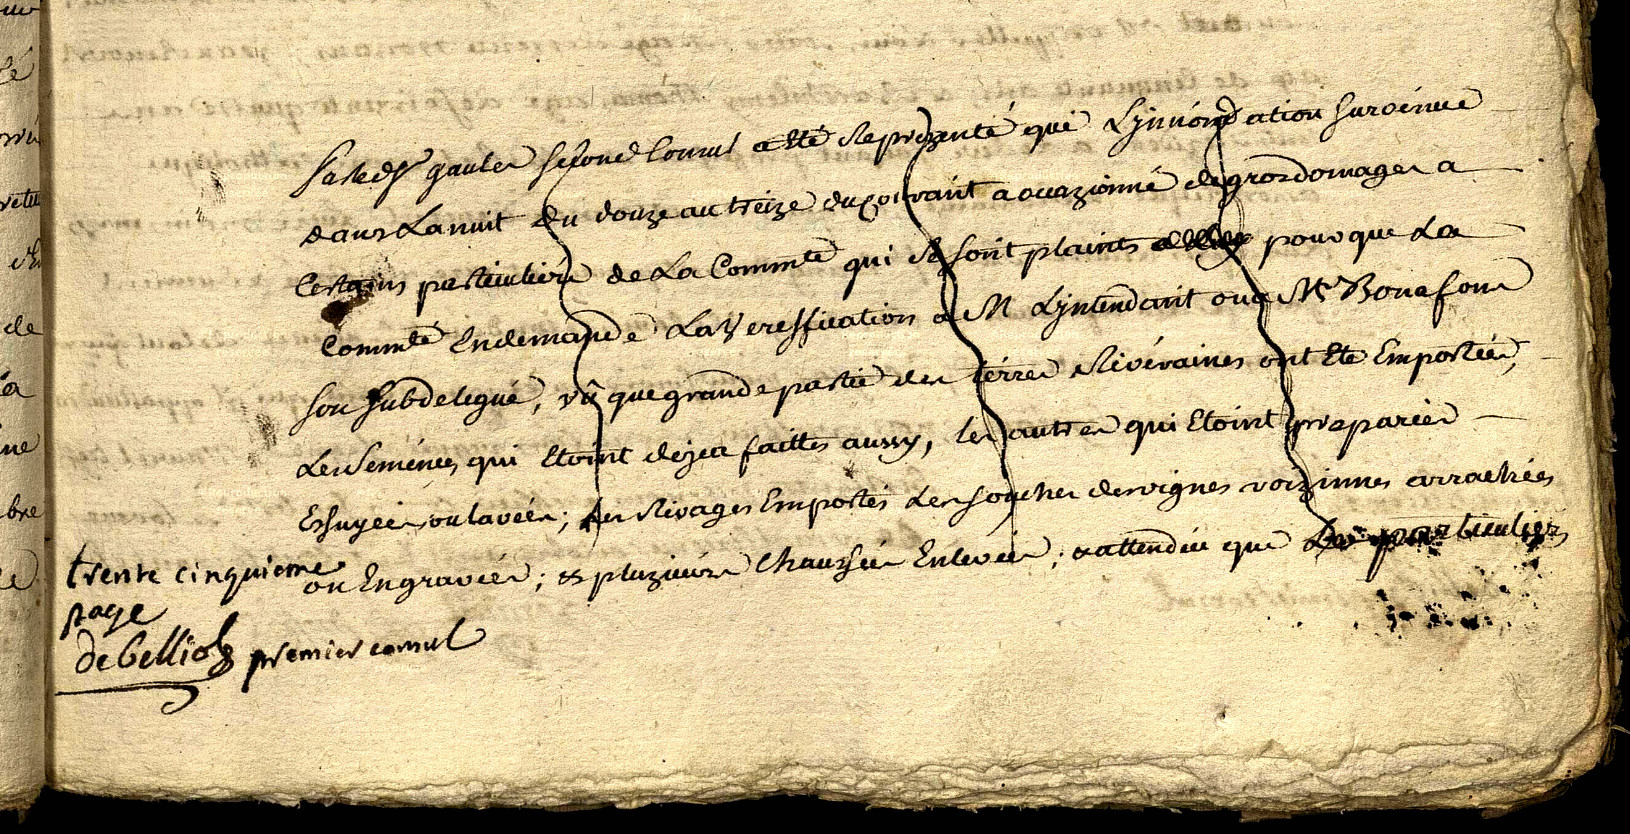 Par led.t gaules second Consul a Eté Représenté que L'jnnondation survénue
dans La nuit du douze au treize du courant a occazionné de gros domages a
Certains particuliers de La Commté qui se sont plaints pour que La
Commté En demande La Veréffication a M L'jntendant ou a Mr Bonafous
son subdelegué, vû que grande partie des térres Rivéraines ont Eté Emportées,
Les Seménces qui Etoint dejea faittes aussy, les autres qui Etoint preparées
Essuyées ou lavées; les Rivages Emportés Les souches des vignes voizinnes arrachées
ou Engravées; et pluzieurs Chaussées Enlevées; attendeu que Les particuliers
trente cinquieme
page
de belliol premier consul